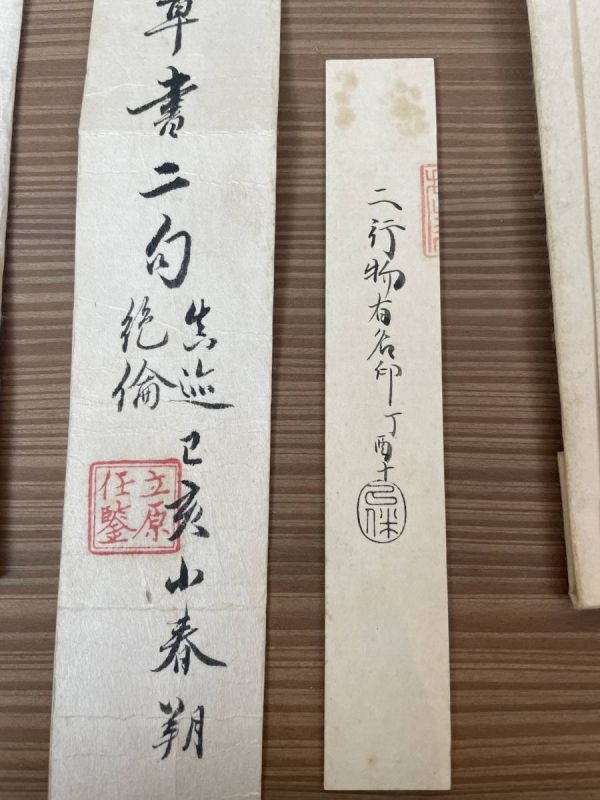 草書二句
真迹
絶倫
己亥小春朔
立原
任鑒
二行物有名印 丁酉十